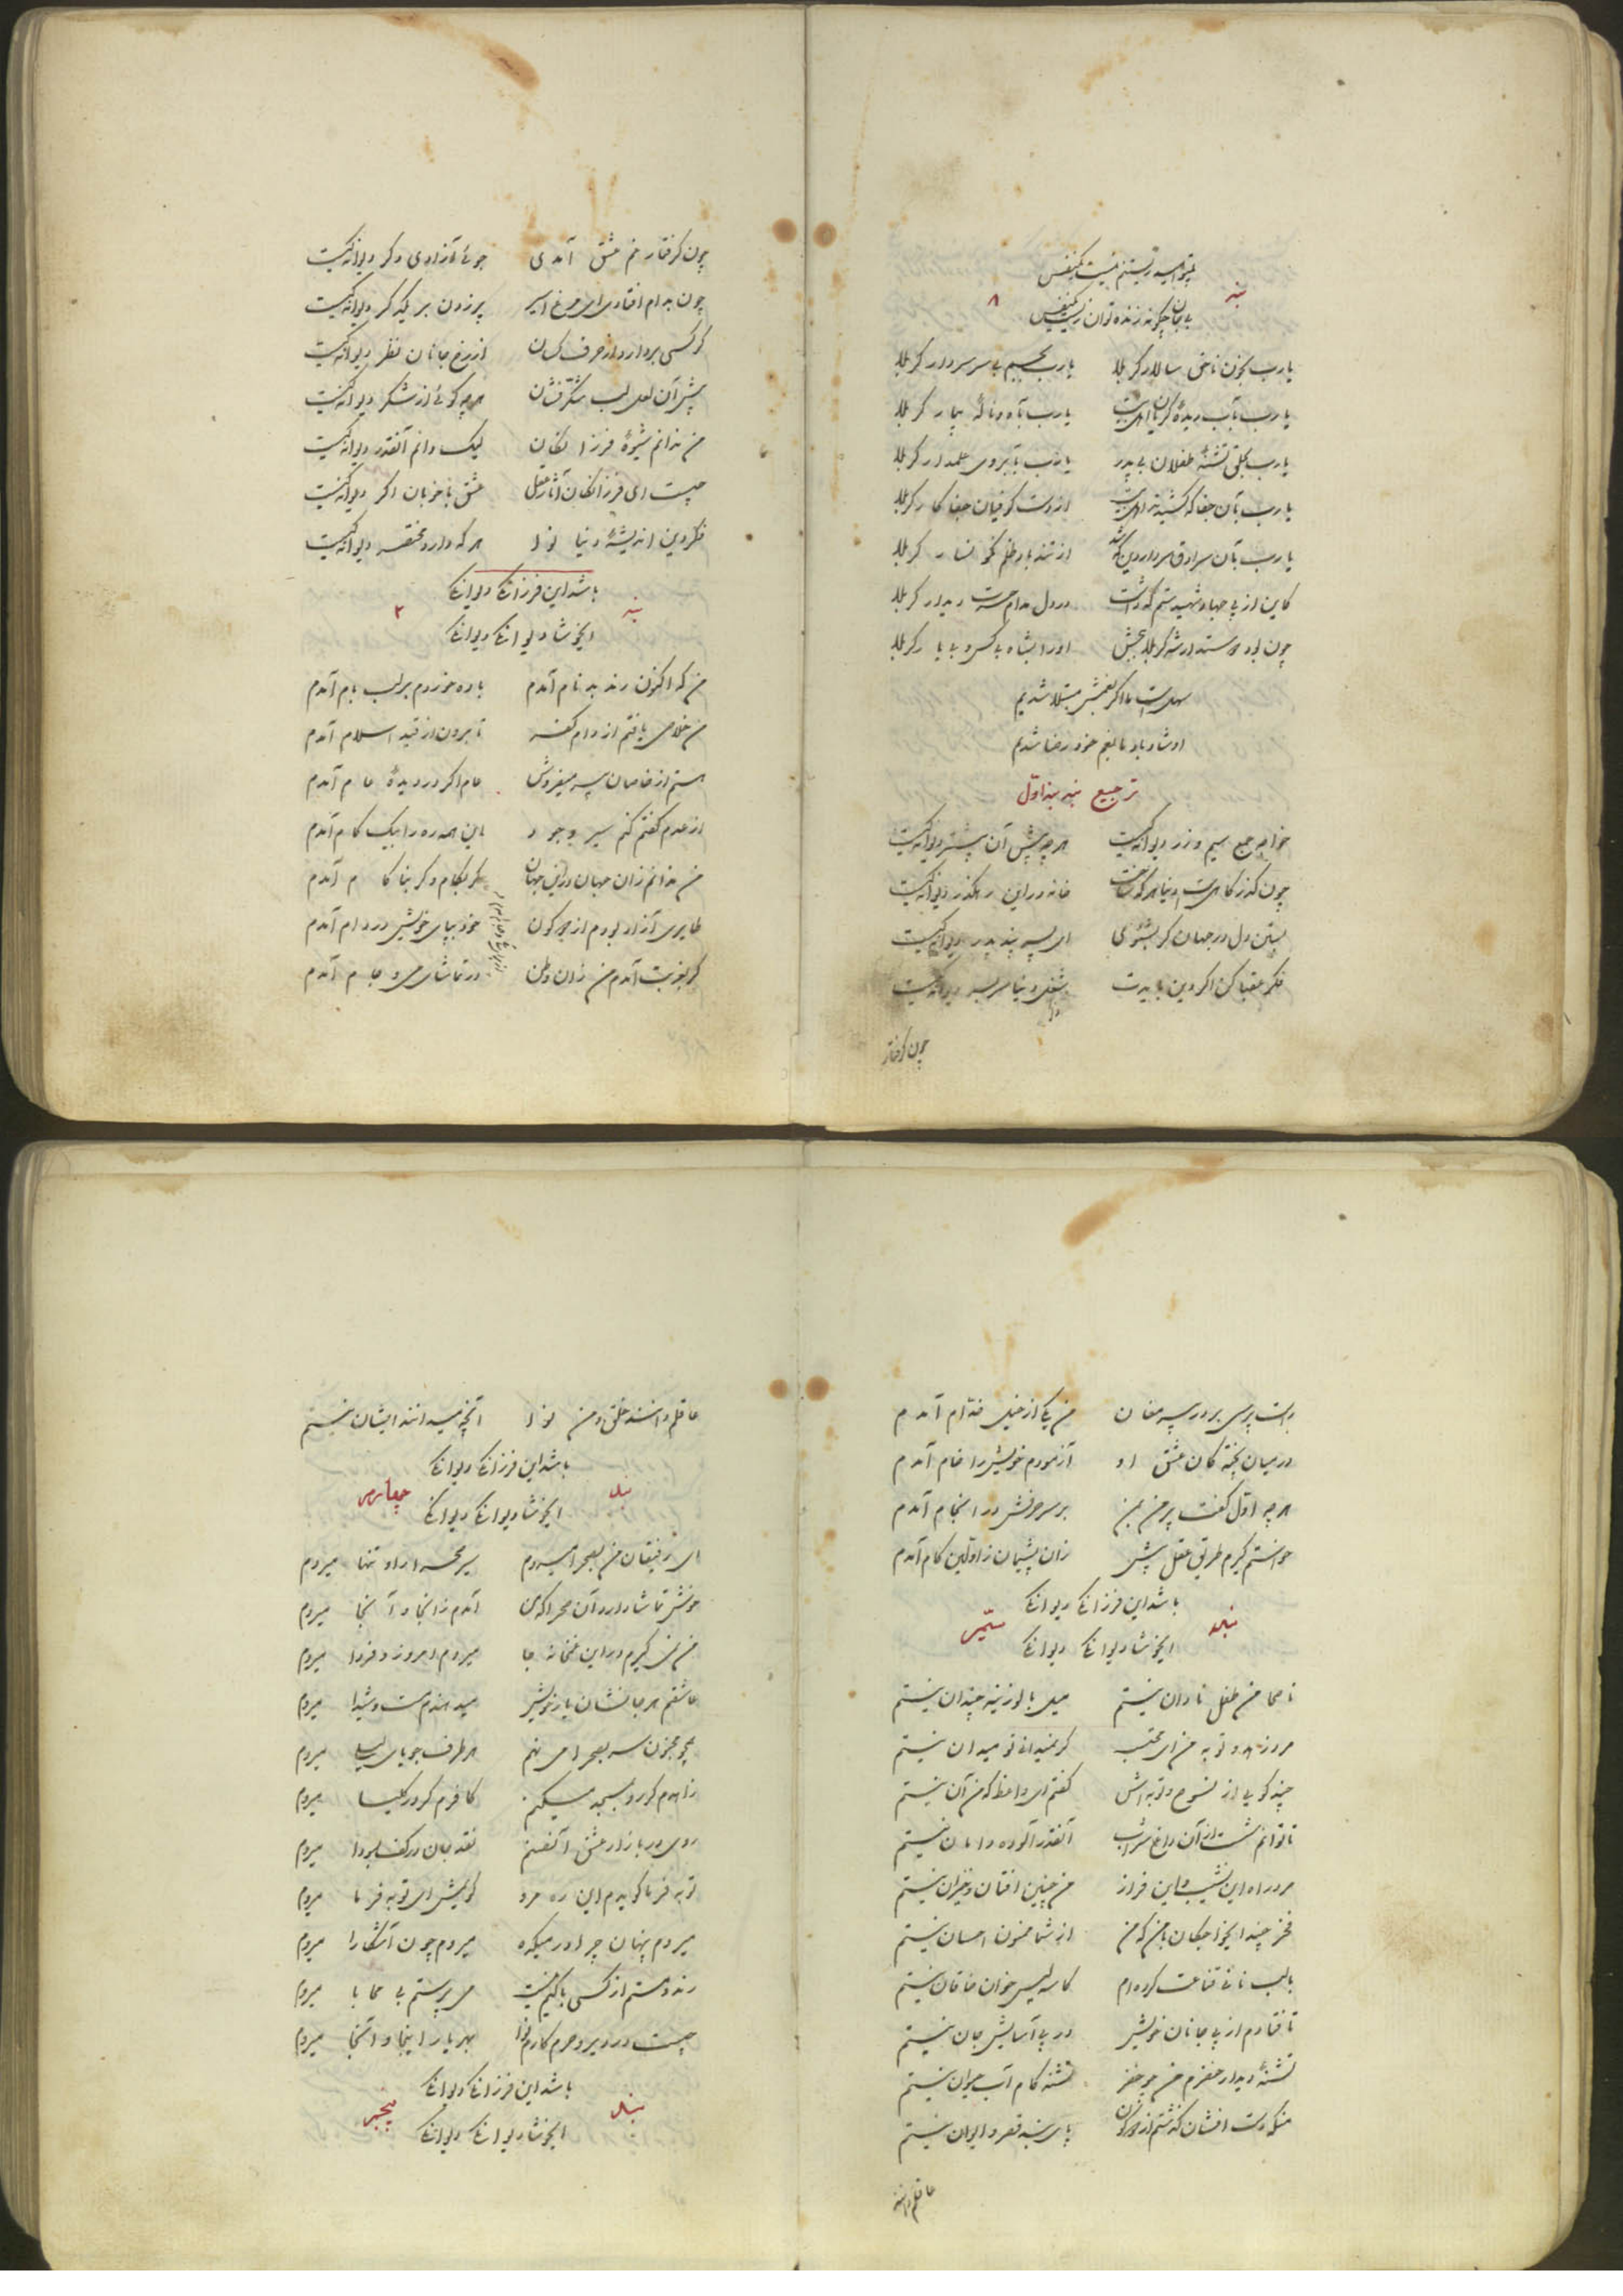 بی تو امید زیستنم نیست یکنفس
بند ۸
بی جان چگونه زنده توان زیست یکنفس
یارب بخون ناحق سالار کربلا یارب بجسم بی سر سردار کربلا
یارب بآب دیدهٔ گریان اهل بیت یارب بآه و نالهٔ بیمار کربلا
یارب بحلق تشنهٔ طفلان بی پدر یارب بآبروی علمدار کربلا
یارب بآن جفا که کشیدند اهل بیت از دست کوفیان جفا کار کربلا
یارب بآن سرادق سردار دین که شد از تند باد ظلم نگونسار کربلا
کاین از پی جهاد شهید ستم که داشت در دل مدام حسرت دیدار کربلا
چون بود دوستدار شه کربلا ببخش او را بشاه بی کس و بی یار کربلا
سهل است ما اگر بغمش مبتلا شدیم
او شاد باد ما بغم خود رضا شدیم
ترجیع بند بند اول
خواجه جمع سیم و زر دیوانگیست هر چه پیش آن پیشتر دیوانگیست
چون گذرگاهست دنیا هر که ساخت خانه در این رهگذر دیوانگیست
بستن دل در جهان گر بشنوی ای پسر پند پدر دیوانگیست
فکر عقبا کن اگر دین بایدت شغل دنیا سربسر دیوانگیست
چون گرفتار
چون گرفتار غم عشق آمدی جوئی آزادی دگر دیوانگیست
چون بدام افتادی ای مرغ اسیر پر زدن بر یکدگر دیوانگیست
گر کسی بردارد از حرف کسان از رخ جانان نظر دیوانگیست
پیش آن لعل لب شکرفشان هر چه گوئی از شکر دیوانگیست
من ندانم شیوهٔ فرزانگان لیک دانم آنقدر دیوانگیست
چیست ای فرزانگان آثار عقل عشق با خوبان اگر دیوانگیست
فکر دین اندیشهٔ دنیا نوا هر که دارد مختصر دیوانگیست
باشد این فرزانگی دیوانگی
بند ۲
ایخوشا دیوانگی دیوانگی
من که اکنون رند بد نام آمدم باده خوردم بر لب بام آمدم
من خلاصی یافتم از دام کفر تا برون از قید اسلام آمدم
هستم از خاصان پیر میفروش عام اگر در دیدهٔ عام آمدم
از عدم گفتم کنم سیر وجود این همه ره را بیک گام آمدم
من ندانم زان جهان در این جهان گر بکام و گر بناکام آمدم
طایری آزاد بودم از دو کون خود بپای خویش در دام آمدم
گر بغربت آمدم من زان وطن در تماشای می و جام آمدم
دست پرسی بر در پیر مغان من یکی از خیل خدام آمدم
در میان پختگان عشق او آزمودم خویش را خام آمدم
هر چه اول گفت پیر من بمن بر سر حرفش در انجام آمدم
خواستم گیرم طریق عقل پیش زان پشیمان ز اولین گام آمدم
باشد این فرزانگی دیوانگی
بند سیم
ایخوشا دیوانگی دیوانگی
ناصحا من طفل نادان نیستم میل با لوزینه چندان نیستم
مرد زهد و توبه من ای محتسب گر نمیدانی تو میدان نیستم
چند گویی از نصوح و توبه اش گفتم ای واعظ که من آن نیستم
تا توانم شست از آن داغ شراب آنقدر آلوده دامان نیستم
مرد راه این نشیب و این فراز من چنین افتان و خیزان نیستم
فخر چند ایخواجگان با من که من از شما ممنون احسان نیستم
با لب نانی قناعت کرده ام کاسه لیس خوان خاقان نیستم
تا فتادم از پی جانان خویش در پی آسایش جان نیستم
تشنهٔ دیدار خضرم من چو خضر تشنه کام آب حیوان نیستم
منکه دست افشان گذشتم از دو کون پای بند قصر و ایوان نیستم
عاقلم دانند
عاقلم دانند خلق و من نوا آنچه میدانند ایشان نیستم
باشد این فرزانگی دیوانگی
بند چهارم
ایخوشا دیوانگی دیوانگی
ای رفیقان من بصحرا میروم سر بصحرا داده تنها میروم
خوش تماشا دارد آن صحرا که من آمدم ز آنجا و آنجا میروم
من نمی گیرم در این غمخانه جا میروم امروز و فردا میروم
عاشقم هر جا نشان یار خویش میدهندم مست و شیدا میروم
همچو مجنون سر بصحرا می نهم هر طرف جویای لیلی میروم
زاهدم گر رو بمسجد میکنم کافرم گر در کلیسا میروم
روی در بازار عشق آنصنم نقد جان در کف بسودا میروم
توبه فرما گویدم این ره مرو گویمش ای توبه فرما میروم
میروم پنهان چرا در میکده میروم چون آشکارا میروم
رند و مستم از کسی باکیم نیست می پرستم بی محابا میروم
چیست در دیر و حرم کارم نوا بهر یار اینجا و آنجا میروم
باشد این فرزانگی دیوانگی
بند پنجم
ایخوشا دیوانگی دیوانگی